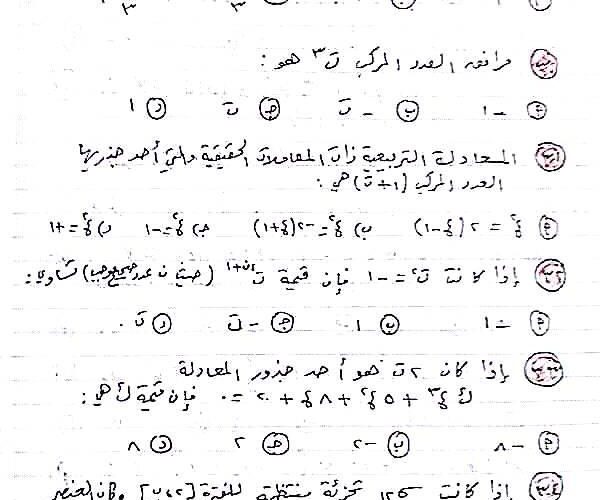 ٣٠ مرافق العدد المركب ت٣ هو :
أ) -١ ب) -ت ج) ت د) ١
٣١ المعادلة التربيعية ذات المعاملات الحقيقية والتي أحد جذريها
العدد المركب (١+ت) هي :
أ) ع٢ = ٢(ع-١) ب) ع٢ = -٢(ع+١) ج) ع٢ = -١ د) ع٢ = +١
٣٢ إذا كانت ت٢ = -١ فإن قيمة ت (حيث ن عدد صحيح موجب) تساوي :
أ) -١ ب) ١ ج) -ت د) ت
٣٣ إذا كان ٢ت هو أحد جذور المعادلة
ك ع٣ + ٥ع٢ + ٨ع + ٢٠ = ٠ فإن قيمة ك هي :
أ) -٨ ب) -٢ ج) ٢ د) ٨
٣٤ إذا كانت تجزئة منتظمة للفترة [٢،ب] وكان العنصر